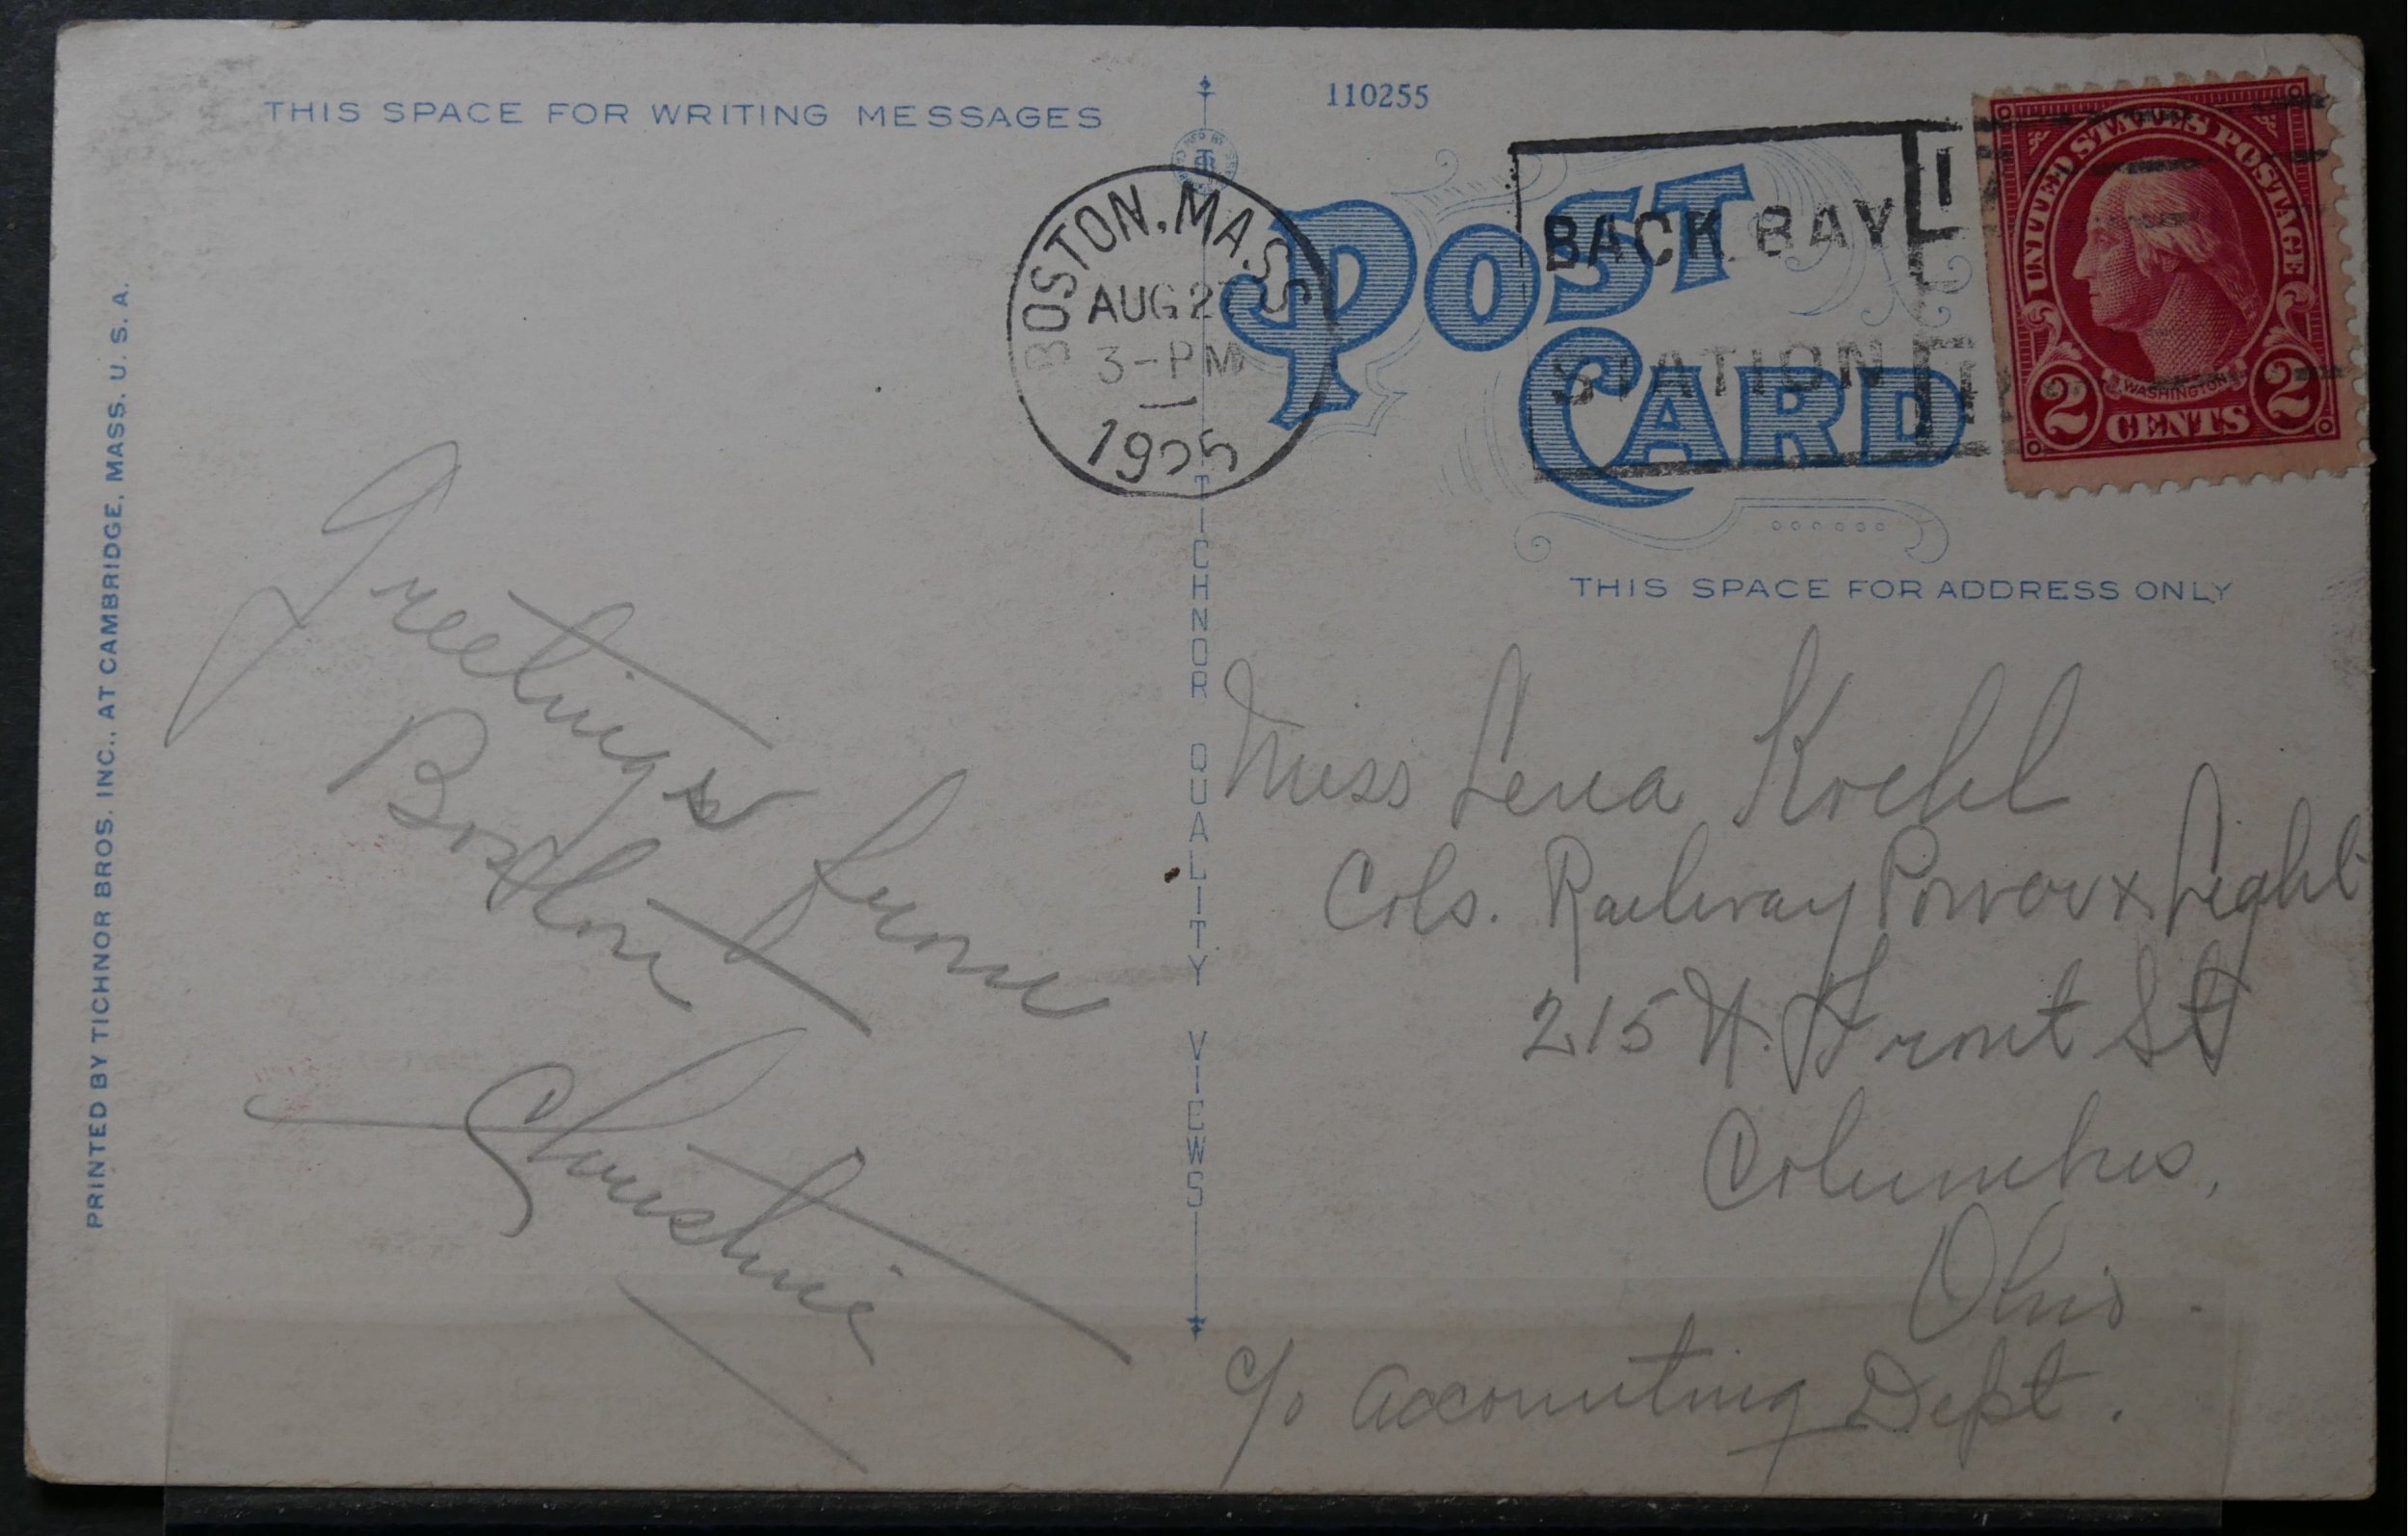 THIS SPACE FOR WRITING MESSAGES
110255
BOSTON, MASS
AUG 27
3-PM
1925
BACK BAY
STATION
POST
CARD
UNITED STATES POSTAGE
WASHINGTON
2 CENTS 2
THIS SPACE FOR ADDRESS ONLY
PRINTED BY TICHNOR BROS. INC., AT CAMBRIDGE, MASS. U. S. A.
TICHNOR QUALITY VIEWS
Greetings from
Boston
Christine
Miss Lena Koehl
Cols. Railway Power & Light
215 N. Front St
Columbus,
Ohio.
c/o Accounting Dept.